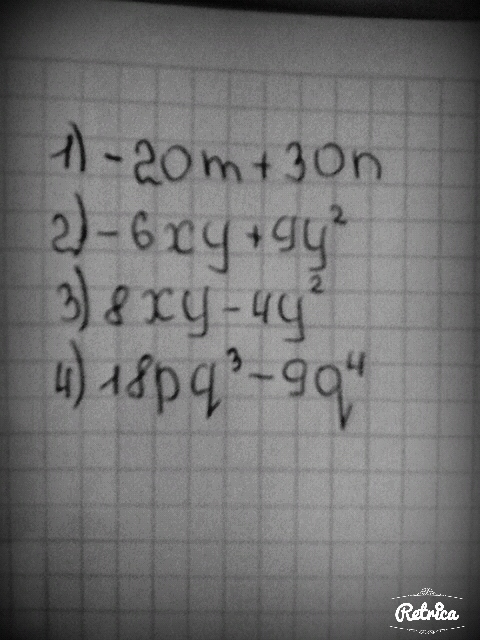 1) -20m + 30n
2) -6xy + 9y²
3) 8xy - 4y²
4) 18pq³ - 9q⁴
Retrica